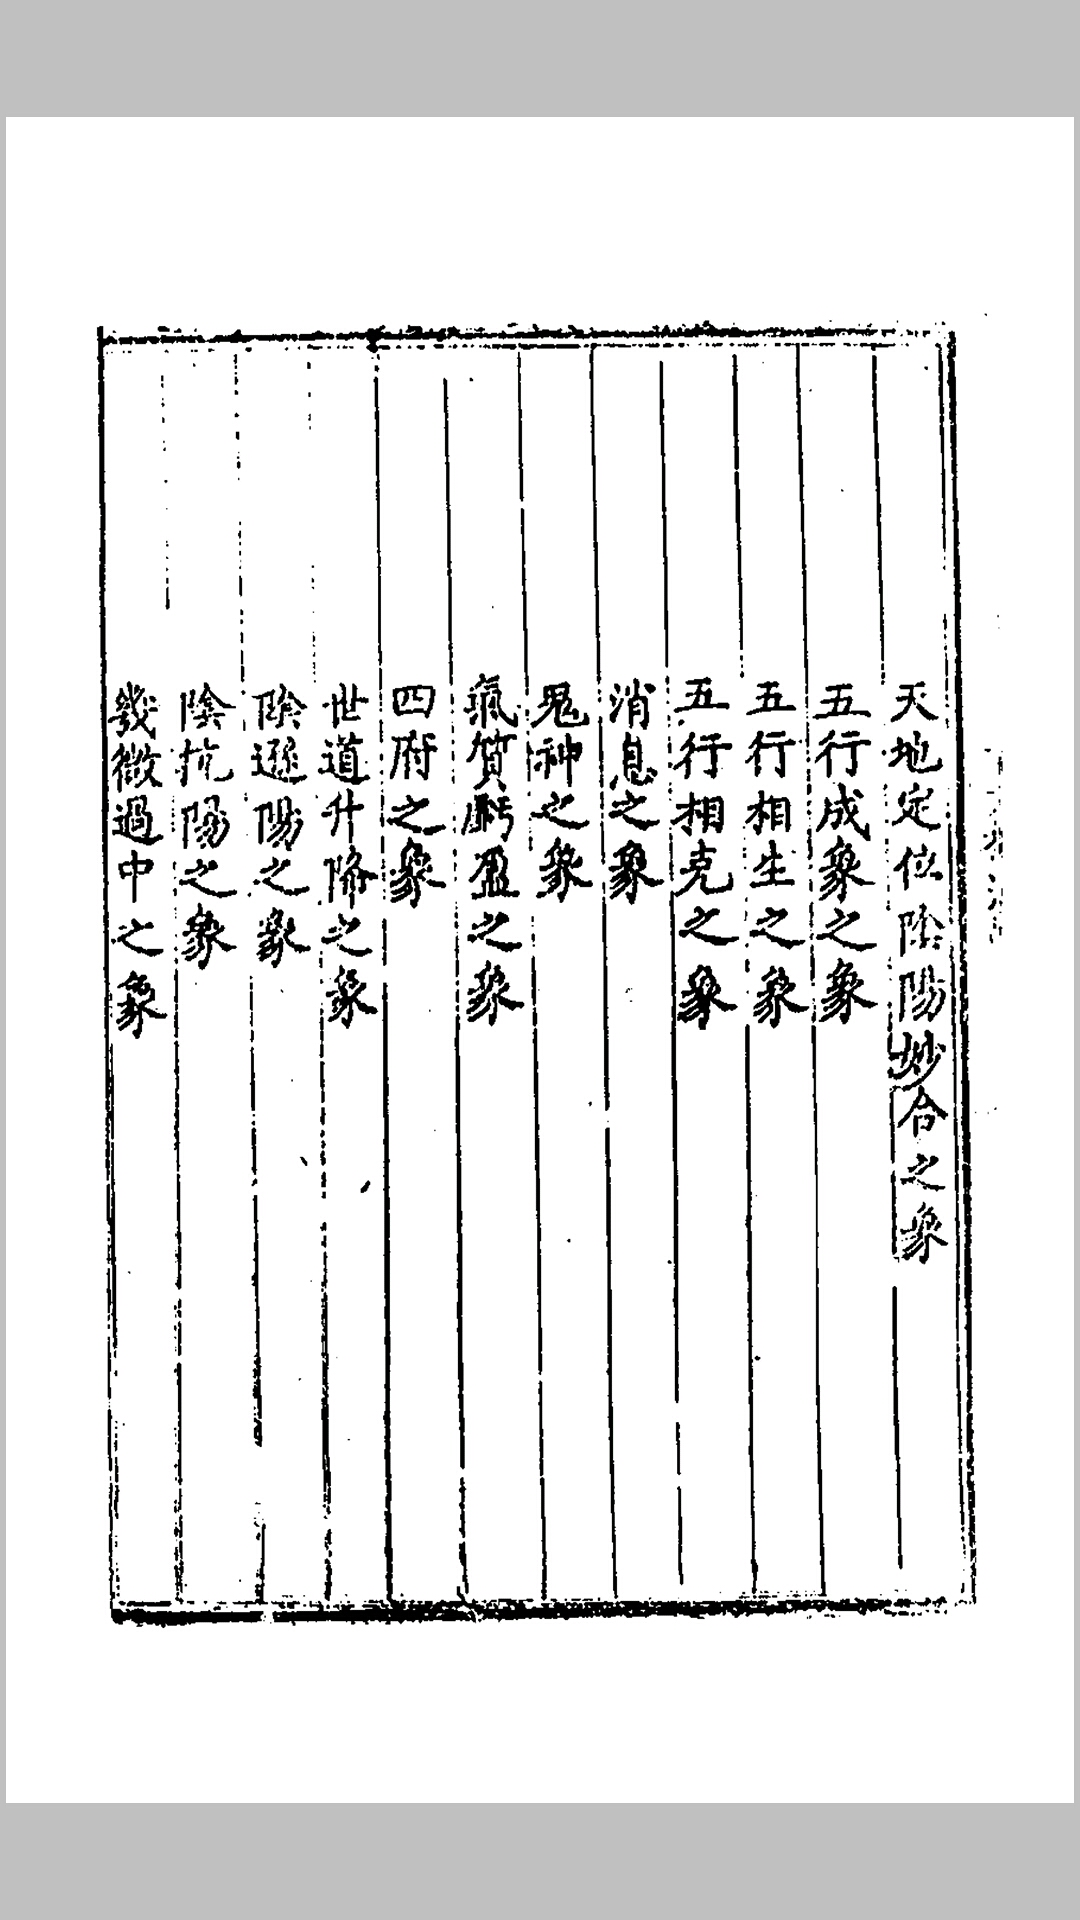 天地定位陰陽妙合之象
五行成象之象
五行相生之象
五行相克之象
消息之象
鬼神之象
氣質虧盈之象
四府之象
世道升降之象
陰遜陽之象
陰抗陽之象
幾微過中之象